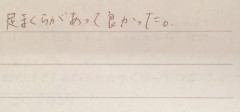 足まくらがあって良かった。